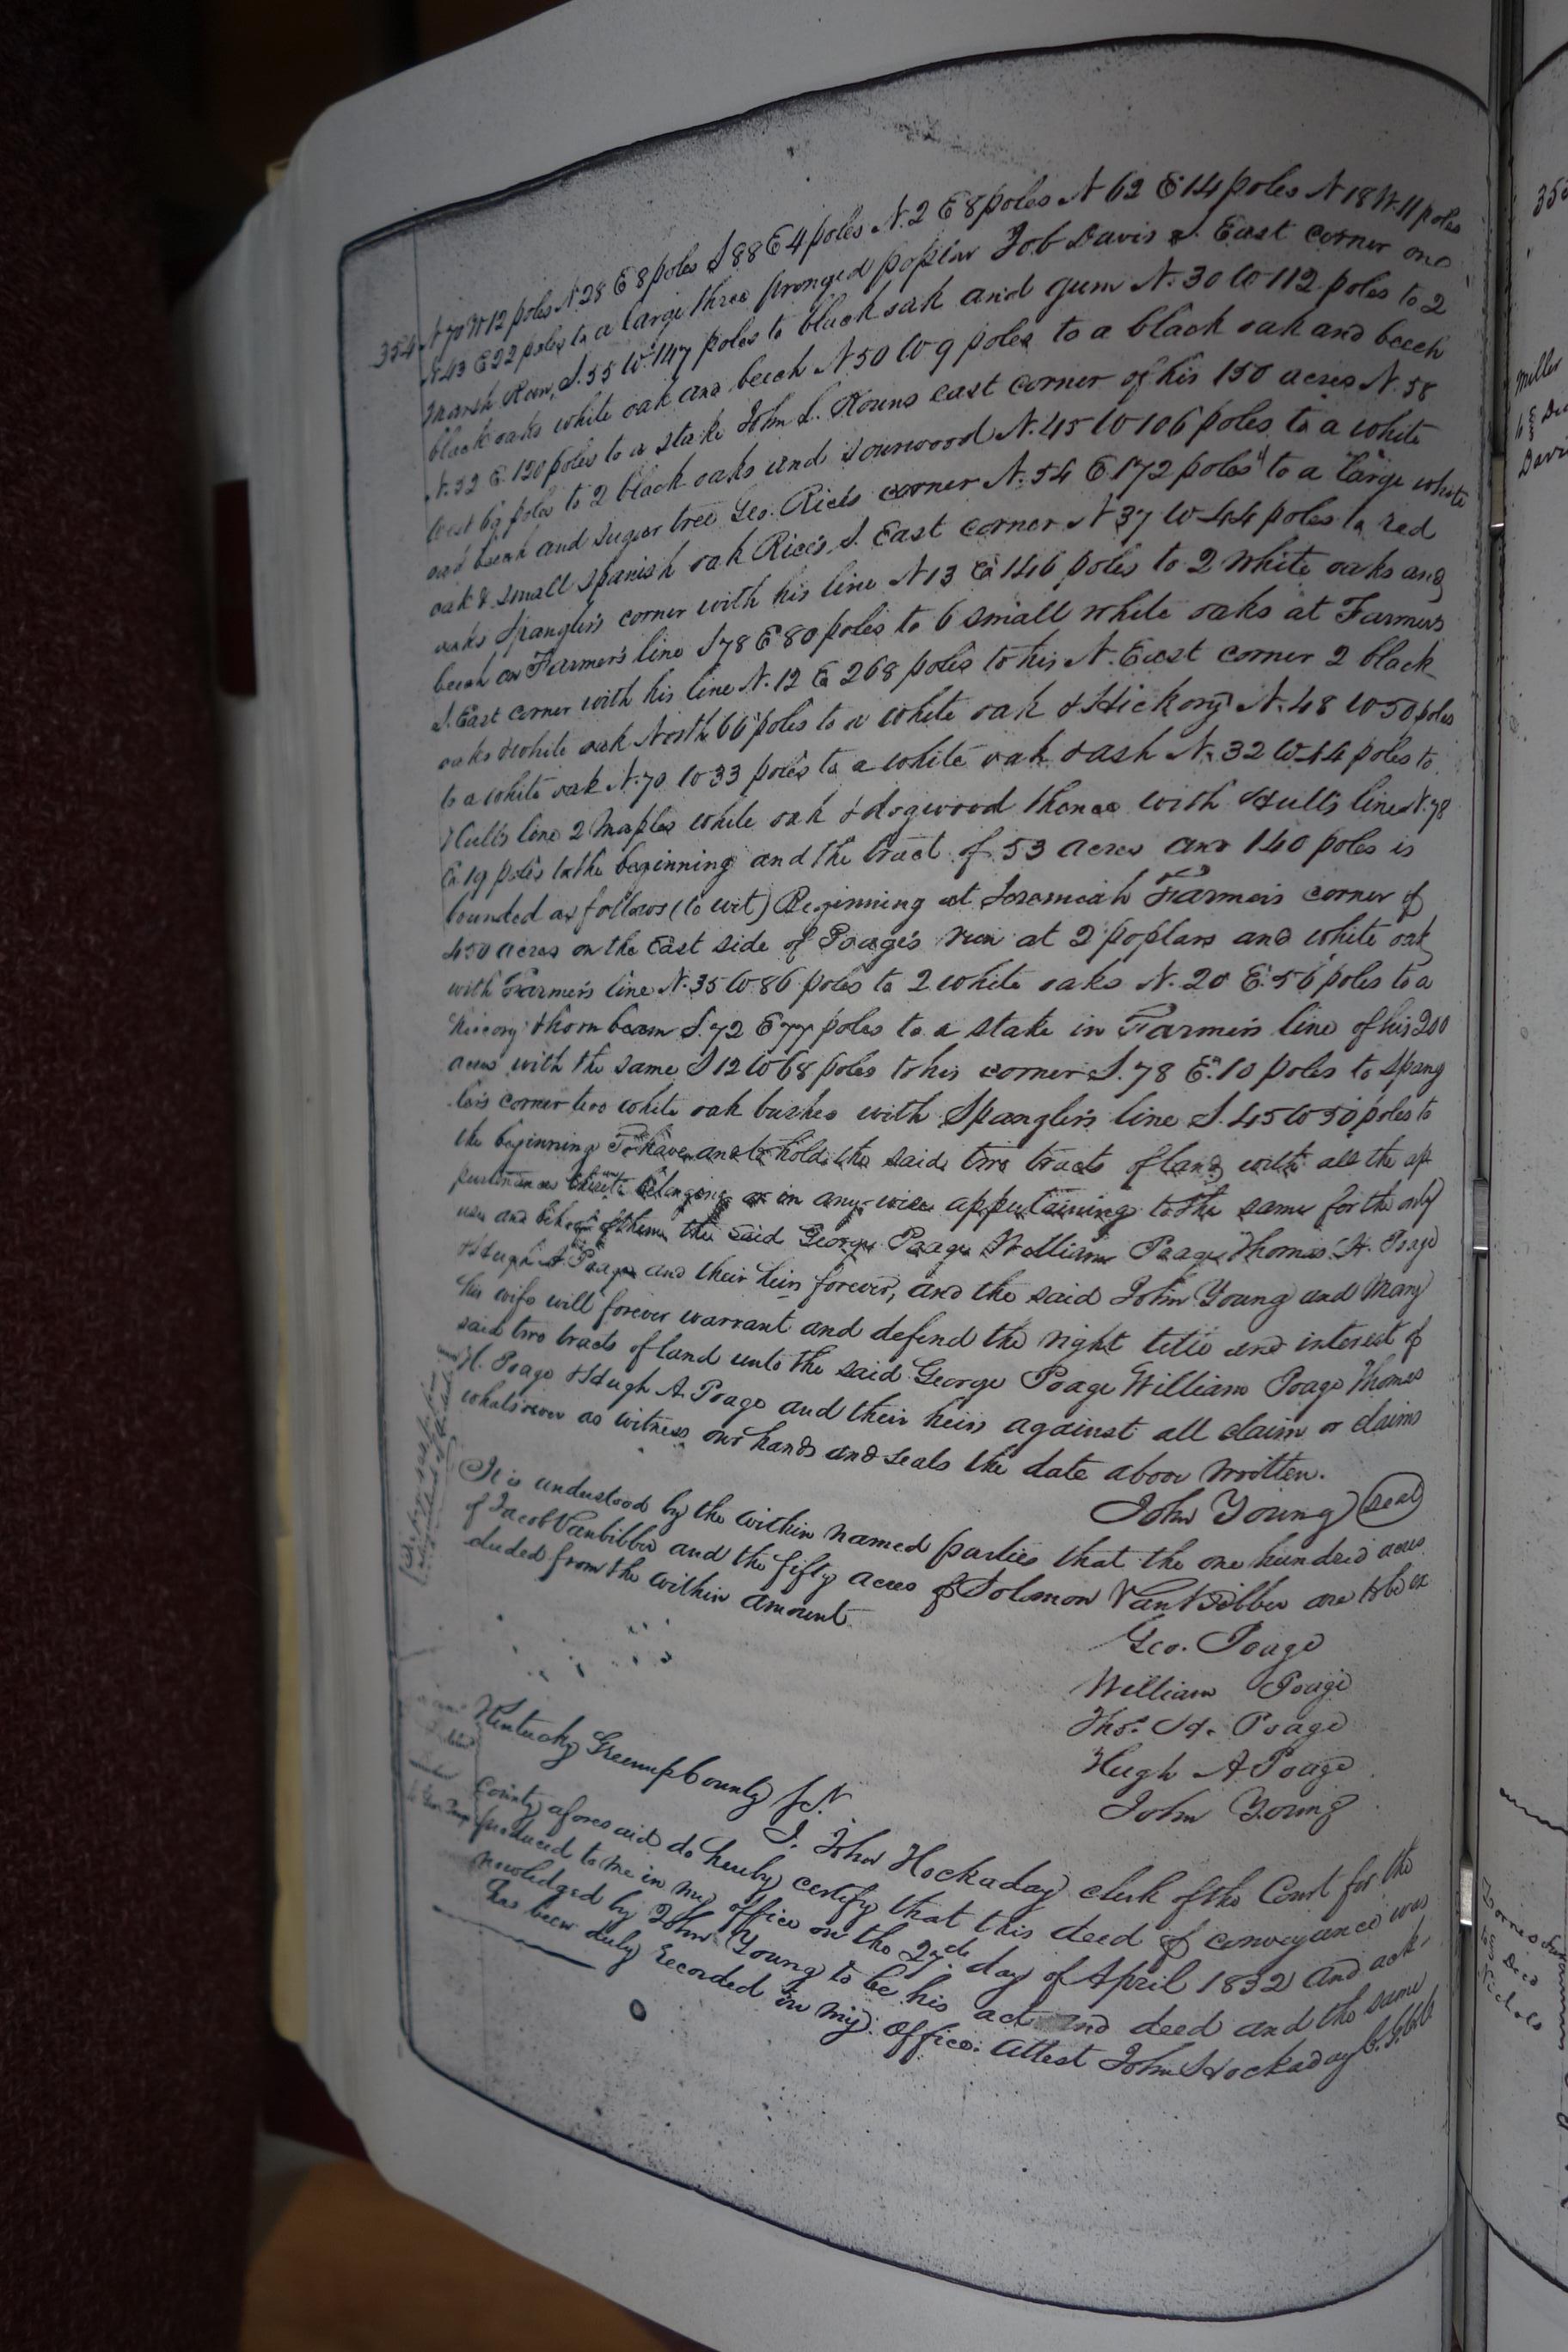 354 N 70 W 12 poles N 28 E 8 poles S 88 E 4 poles N. 2 E 8 poles N 62 E 14 poles N 18 W. 11 poles
N 43 E 22 poles to a large three pronged poplar Job Davis S. East corner on
Marsh Run, S. 55 W. 147 poles to black oak and gum N. 30 W 112 poles to 2
black oaks white oak and beech N 50 W 9 poles to a black oak and beech
N. 52 E. 120 poles to a stake John L. Kouns east corner of his 150 acres N. 58
West 69 poles to 2 black oaks and sourwood N. 45 W 106 poles to a white
oak beech and sugar tree Geo. Rice's corner N. 54 E 172 poles to a large white
oak & small spanish oak Rice's S. East corner N 37 W 44 poles to red
oaks Spangler's corner with his line N 13 E 146 poles to 2 white oaks and
beech on Farmer's line S 78 E 80 poles to 6 small white oaks at Farmers
S. East corner with his line N. 12 E 268 poles to his N. East corner 2 black
oaks & white oak North 66 poles to a white oak & Hickory N. 48 W 50 poles
to a white oak N. 70 W 33 poles to a white oak & ash N. 32 W 14 poles to
Hull's line 2 Maples white oak & dogwood thence with Hull's line N. 78
E 19 poles to the beginning and the tract of 53 acres and 140 poles is
bounded as follows (to wit) Beginning at Jeremiah Farmer's corner of
450 acres on the East side of Poage's run at 2 poplars and white oak
with Farmer's line N. 35 W 86 poles to 2 white oaks N. 20 E. 56 poles to a
hiccory & hornbeam S. 72 E 77 poles to a stake in Farmer's line of his 200
acres with the same S 12 W 68 poles to his corner S. 78 E. 10 poles to Spang
ler's corner two white oak bushes with Spangler's line S. 45 W 50 poles to
the beginning To have and to hold the said two tracts of land with all the ap
purtenances thereto belonging or in any wise appertaining to the same for the only
use and behoof of them the said George Poage William Poage Thomas H. Poage
& Hugh A. Poage and their heirs forever, and the said John Young and Mary
his wife will forever warrant and defend the right title and interest of
said two tracts of land unto the said George Poage William Poage Thomas
H. Poage & Hugh A. Poage and their heirs against all claim or claims
whatsoever as witness our hands and seals the date above written.
John Young (seal)
It is understood by the within named parties that the one hundred acres
of Jacob Vanbibber and the fifty acres of Solomon VanBibber are to be ex
cluded from the within amount
Geo. Poage
William Poage
Thos. H. Poage
Hugh A Poage
John Young
Kentucky Greenup County Sct.
I. John Hockaday clerk of the Court for the
County aforesaid do hereby certify that this deed of conveyance was
produced to me in my office on the 27th day of April 1832 and ack-
nowledged by John Young to be his act and deed and the same
has been duly recorded in my office. Attest John Hockaday
Miller
Davi
Deed